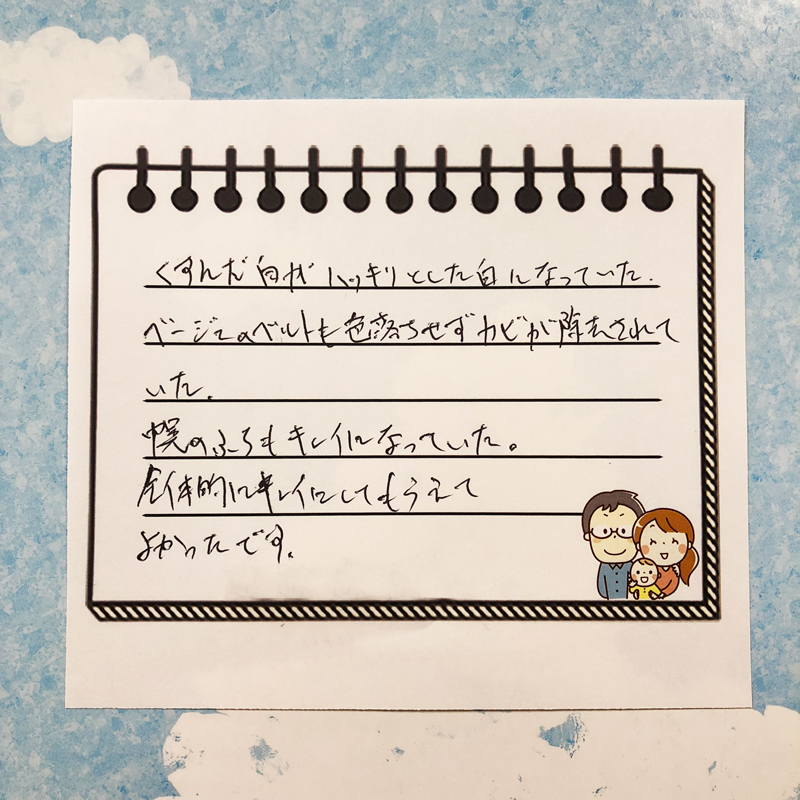 くすんだ白がハッキリとした白になっていた.
ベージュのベルトも色落ちせずカビが除去されて
いた.
幌のふちもキレイになっていた。
全体的にキレイにしてもらえて
よかったです.